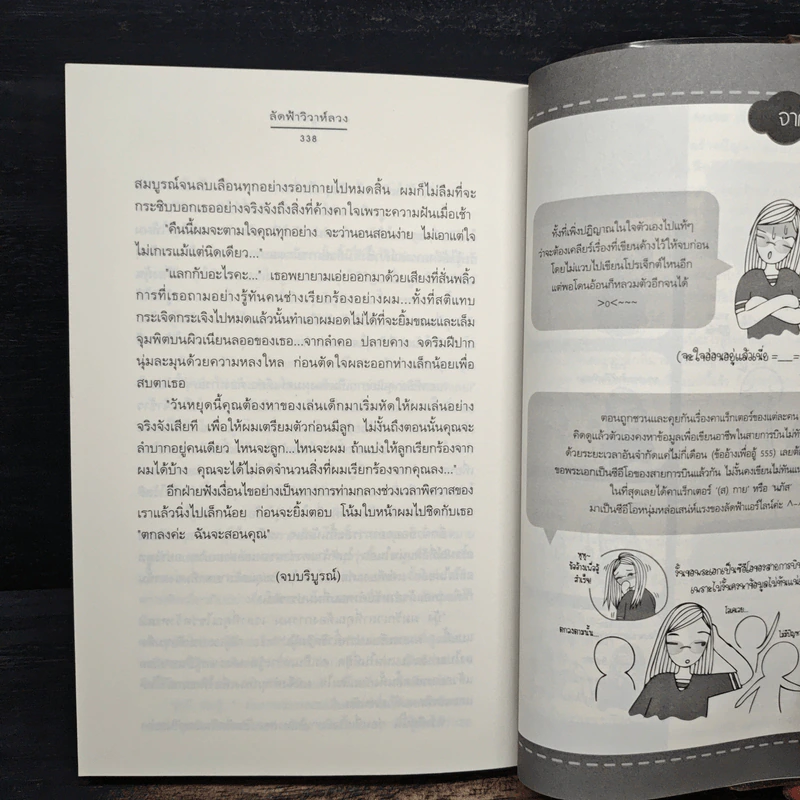 ลัดฟ้าวิวาห์ลวง
338
สมบูรณ์จนลบเลือนทุกอย่างรอบกายไปหมดสิ้น ผมก็ไม่ลืมที่จะ
กระซิบบอกเธออย่างจริงจังถึงสิ่งที่ค้างคาใจเพราะความฝันเมื่อเช้า
"คืนนี้ผมจะตามใจคุณทุกอย่าง จะว่านอนสอนง่าย ไม่เอาแต่ใจ
ไม่เกเรแม้แต่นิดเดียว..."
"แลกกับอะไรคะ..." เธอพยายามเอ่ยออกมาด้วยเสียงที่สั่นพลิ้ว
การที่เธอถามอย่างรู้ทันคนช่างเรียกร้องอย่างผม...ทั้งที่สติแทบ
กระเจิดกระเจิงไปหมดแล้วนั้นทำเอาผมอดไม่ได้ที่จะยิ้มขณะและเล็ม
จุมพิตบนผิวเนียนลออของเธอ...จากลำคอ ปลายคาง จดริมฝีปาก
นุ่มละมุนด้วยความหลงใหล ก่อนตัดใจผละออกห่างเล็กน้อยเพื่อ
สบตาเธอ
"วันหยุดนี้คุณต้องหาของเล่นเด็กมาเริ่มหัดให้ผมเล่นอย่าง
จริงจังเสียที เพื่อให้ผมเตรียมตัวก่อนมีลูก ไม่งั้นถึงตอนนั้นคุณจะ
ลำบากอยู่คนเดียว ไหนจะลูก...ไหนจะผม ถ้าแบ่งให้ลูกเรียกร้องจาก
ผมได้บ้าง คุณจะได้ไม่ลดจำนวนสิ่งที่ผมเรียกร้องจากคุณลง..."
อีกฝ่ายฟังเงื่อนไขอย่างเป็นทางการท่ามกลางช่วงเวลาพิศวาสของ
เราแล้วนิ่งไปเล็กน้อย ก่อนจะยิ้มตอบ โน้มใบหน้าผมไปชิดกับเธอ
"ตกลงค่ะ ฉันจะสอนคุณ"
(จบบริบูรณ์)
ทั้งที่เพิ่งปฏิญาณในใจตัวเองไปแท้ๆ
ว่าจะต้องเคลียร์เรื่องที่เขียนค้างไว้ให้จบก่อน
โดยไม่แวบไปเขียนโปรเจ็กต์ไหนอีก
แต่พอโดนอ้อนก็หลวมตัวอีกจนได้
>o<~~~
(จะใจอ่อนอยู่แล้วเนี่ย =___=
ตอนถูกชวนและคุยกันเรื่องคาแร็กเตอร์ของแต่ละคน
คิดดูแล้วตัวเองคงหาข้อมูลเพื่อเขียนอาชีพในสายการบินไม่ทัน
ด้วยระยะเวลาอันจำกัดแค่ไม่กี่เดือน (ข้ออ้างเพื่ออู้ 555) เลยต้อง
ขอพระเอกเป็นซีอีโอของสายการบินแล้วกัน ไม่งั้นคงเขียนไม่ทัน
ในที่สุดเลยได้คาแร็กเตอร์ '(ส) กาย' หรือ 'นภัส'
มาเป็นซีอีโอหนุ่มหล่อเสน่ห์แรงของลัดฟ้าแอร์ไลน์ค่ะ
ข้ออ้างเพื่ออู้
สำเร็จ